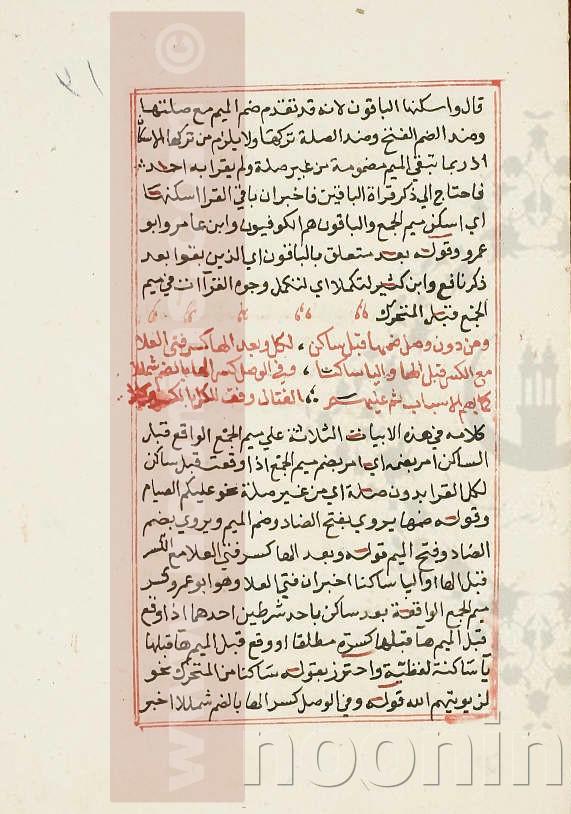 ٢١
قالدوا سكنها الباقون لانه قد تقدم ضم الميم مع صلتها
وضد الضم الفتح وضد الصلة تركها ولا يلزم من تركها الاسكان
اذ ربما تبقي الميم مضمومة من غير صلة ولم يقرا به احد
فاحتاج الي ذكر قراة الباقين فاخبران باقي القرا اسكنها
اي اسكن ميم الجمع والباقون هم الكوفيون وابن عامر وابو
عمرو وقوله بعد متعلق بالباقون اي الذين بقوا بعد
ذكر نافع وابن كثير لتكملا اي لتكمل وجوه القراآت في ميم
الجمع قبل المتحرك
ومن دون وصل ضمها قبل ساكن ، لكل وبعد الها كسر فتى العلا
مع الكسر قبل الها او اليا ساكنا ، وفي الوصل كسر الها بالضم شمللا
كما بهم الاسباب ثم عليهم القتال وقف للكل بالكسر مكملا
كلامه في هذه الابيات الثلاثة علي ميم الجمع الواقع قبل
الساكن امر بضمه اي امر بضم ميم الجمع اذا وقعت قبل ساكن
لكل القرا بدون صلة اي من غير صلة نحو عليكم الصيام
وقوله ضمها يروي بفتح الضاد وضم الميم ويروي بضم
الضاد وفتح الميم قوله وبعد الها كسر فتي العلا مع الكسر
قبل الها او اليا ساكنا اخبران فتي العلا وهو ابو عمرو كسر
ميم الجمع الواقعة بعد ساكن باحد شرطين احدهما اذا وقع
قبل الميم ها قبلها كسرة مطلقا او وقع قبل الميم ها قبلها
يا ساكنة لفظية واحترز بقوله ساكنا من المتحرك نحو
لن يؤتيهم الله قوله وفي الوصل كسر الها بالضم شمللا اخبر
noonin